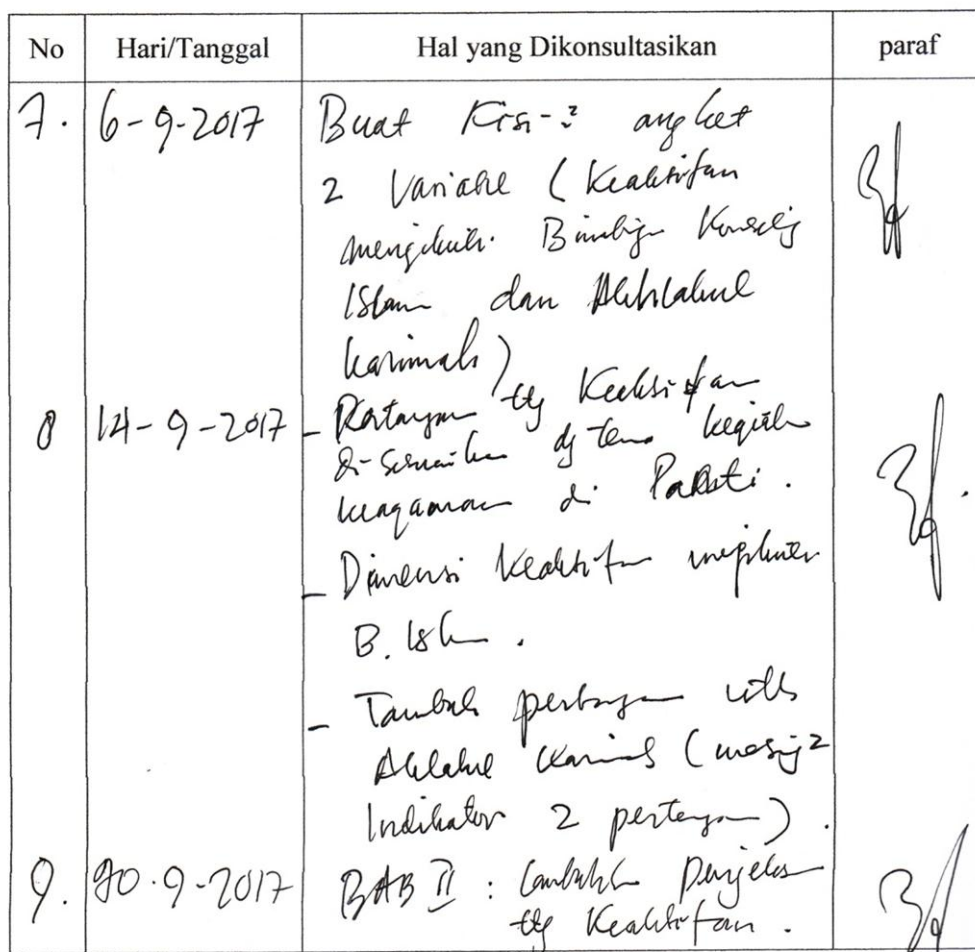 No Hari/Tanggal Hal yang Dikonsultasikan paraf
7. 6-9-2017 Buat Kisi-2 angket
2 Variabel (Keaktifan
mengikuti Bimbingan Konseling
Islam dan Akhlakul
karimah)
8 14-9-2017 - Pertanyaan ttg Keaktifan
di-sesuaikan dg tema kegiatan
keagamaan di
- Dimensi Keaktifan mengikuti
B. Islam.
- Tambah pertanyaan utk
Akhlakul Karimah (masing2
Indikator 2 pertanyaan).
9. 20-9-2017 BAB II: tambahkan Penjelasan
ttg Keaktifan.